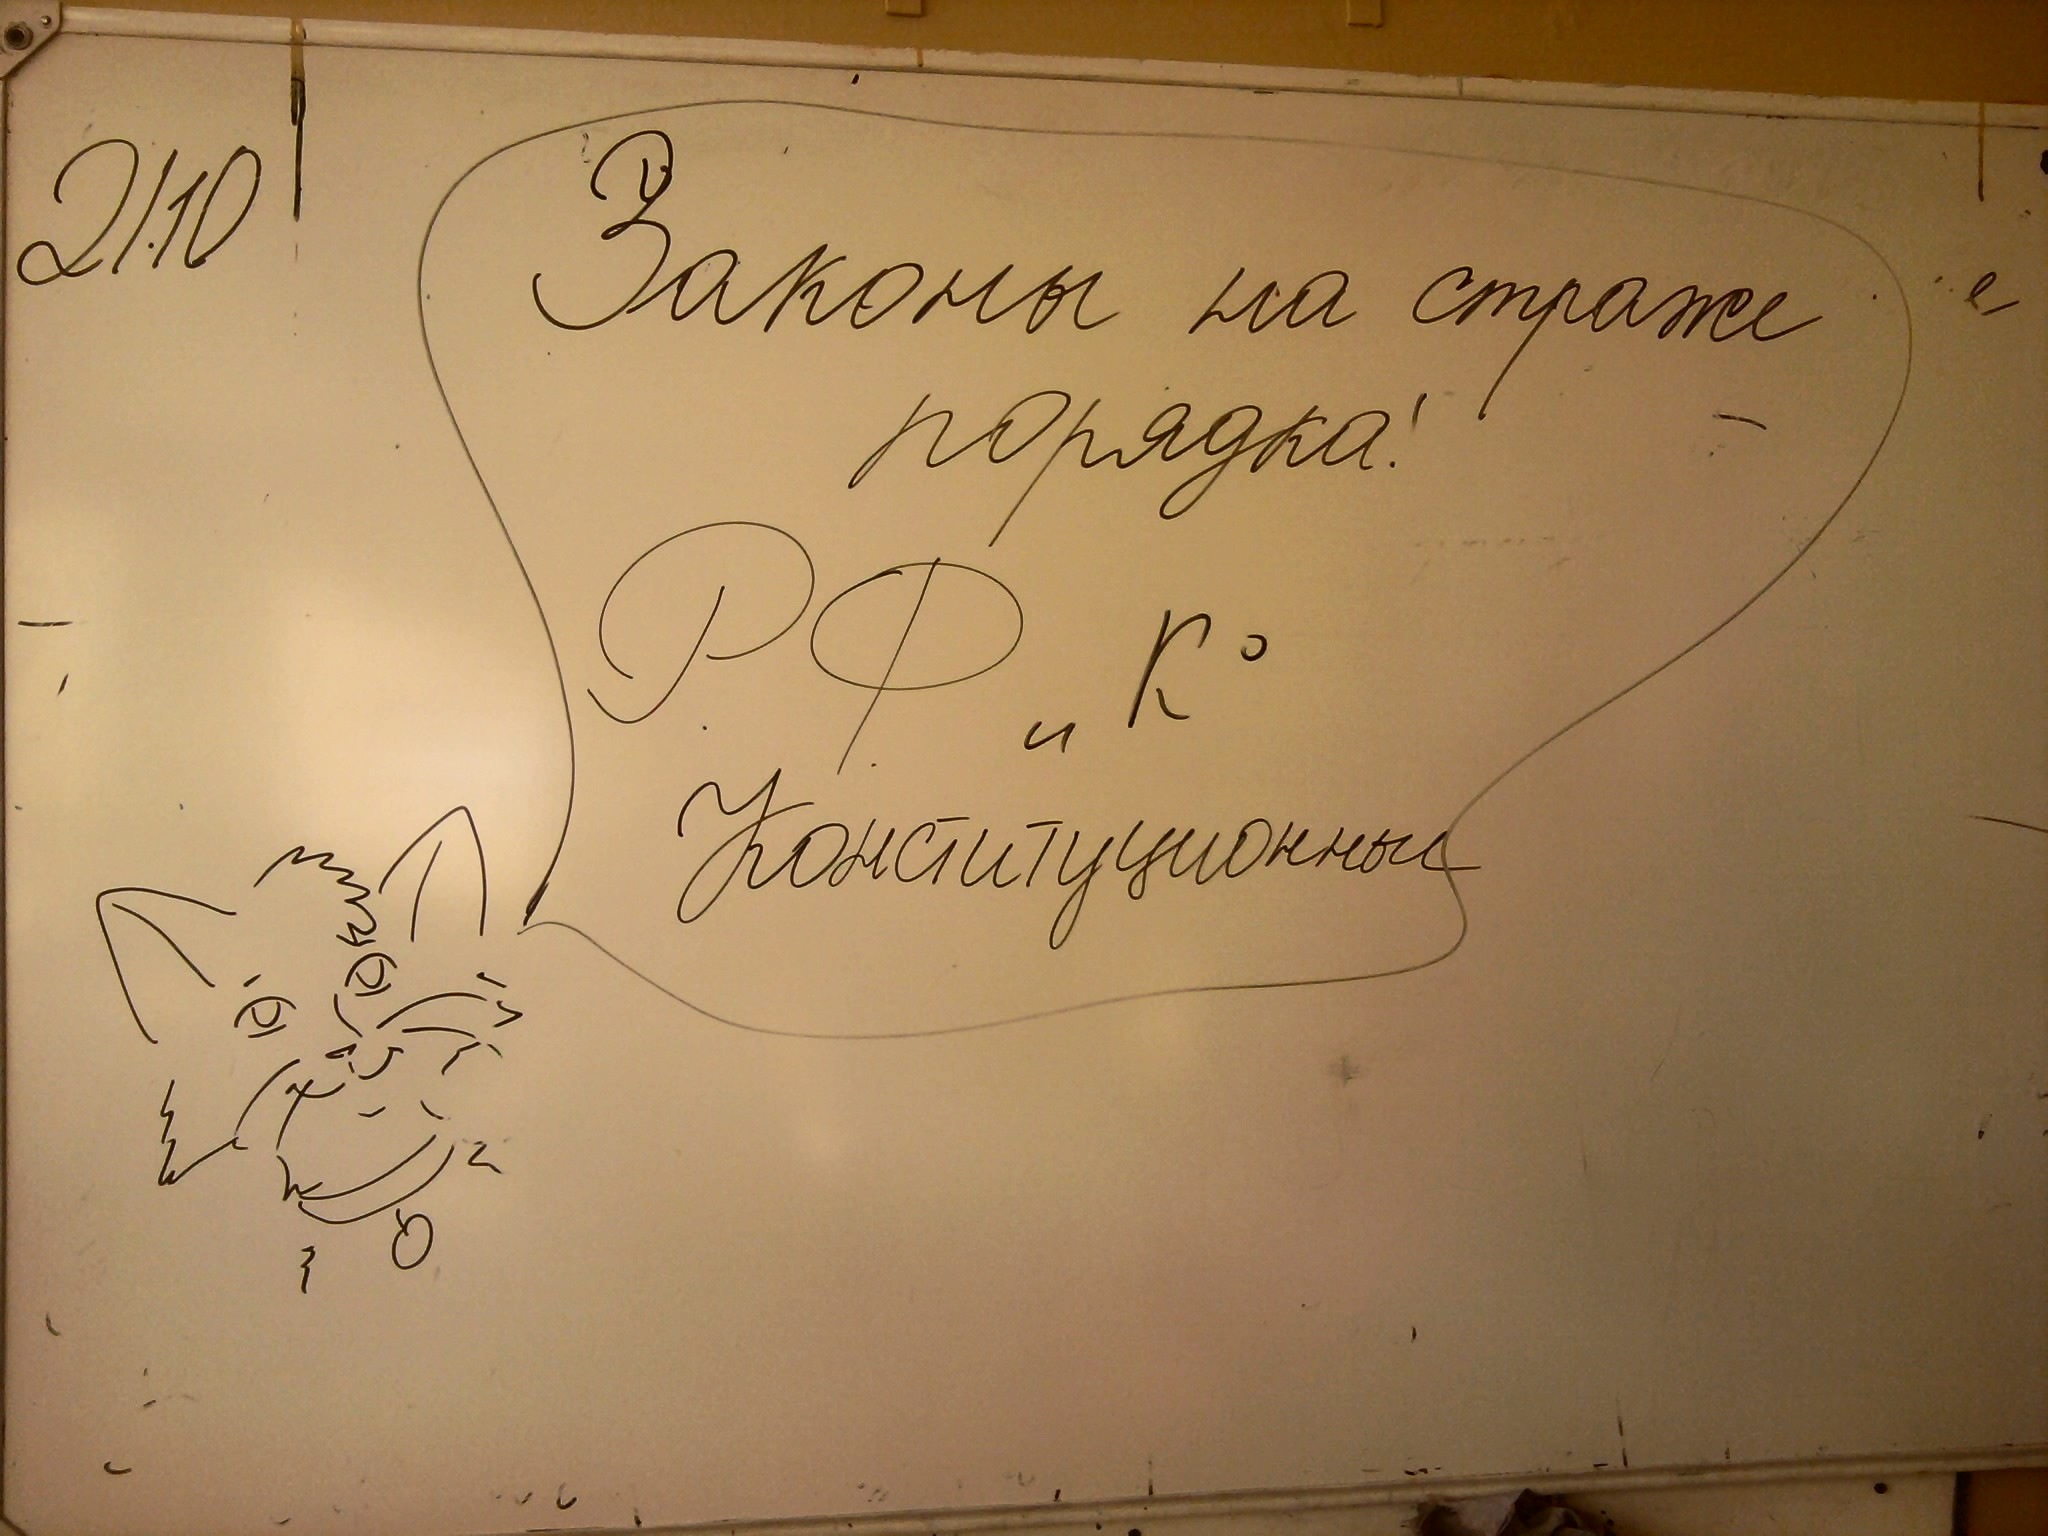 21.10
Законы на страже
порядка!
РФ „К°
Конституционны